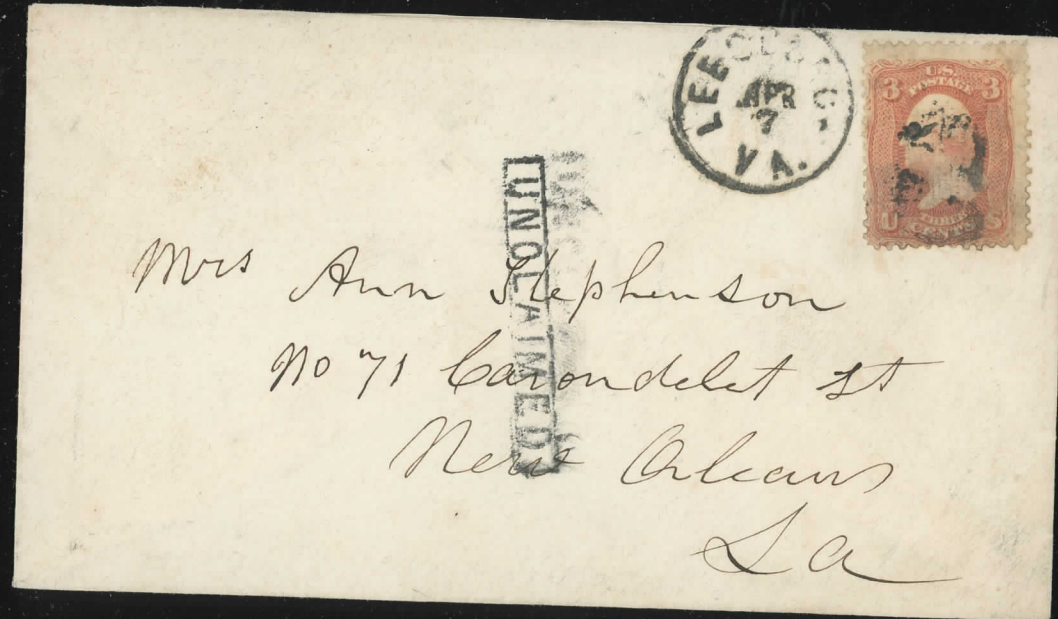 LEESBURG.
APR
7
VA.
U.S.
POSTAGE
3 3
THREE
U CENTS S
UNCLAIMED
Mrs Ann Stephenson
No 71 Carondelet St
New Orleans
La